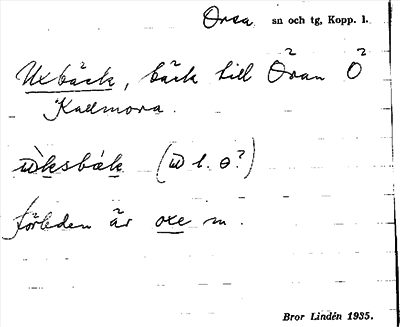 Orsa sn och tg, Kopp. l.
Uxbäck, bäck till Öran Ö
Kallmora.
ɯ̀ksbäk (ɯ l. ɵ?)
förleden är oxe m.
Bror Lindén 1935.